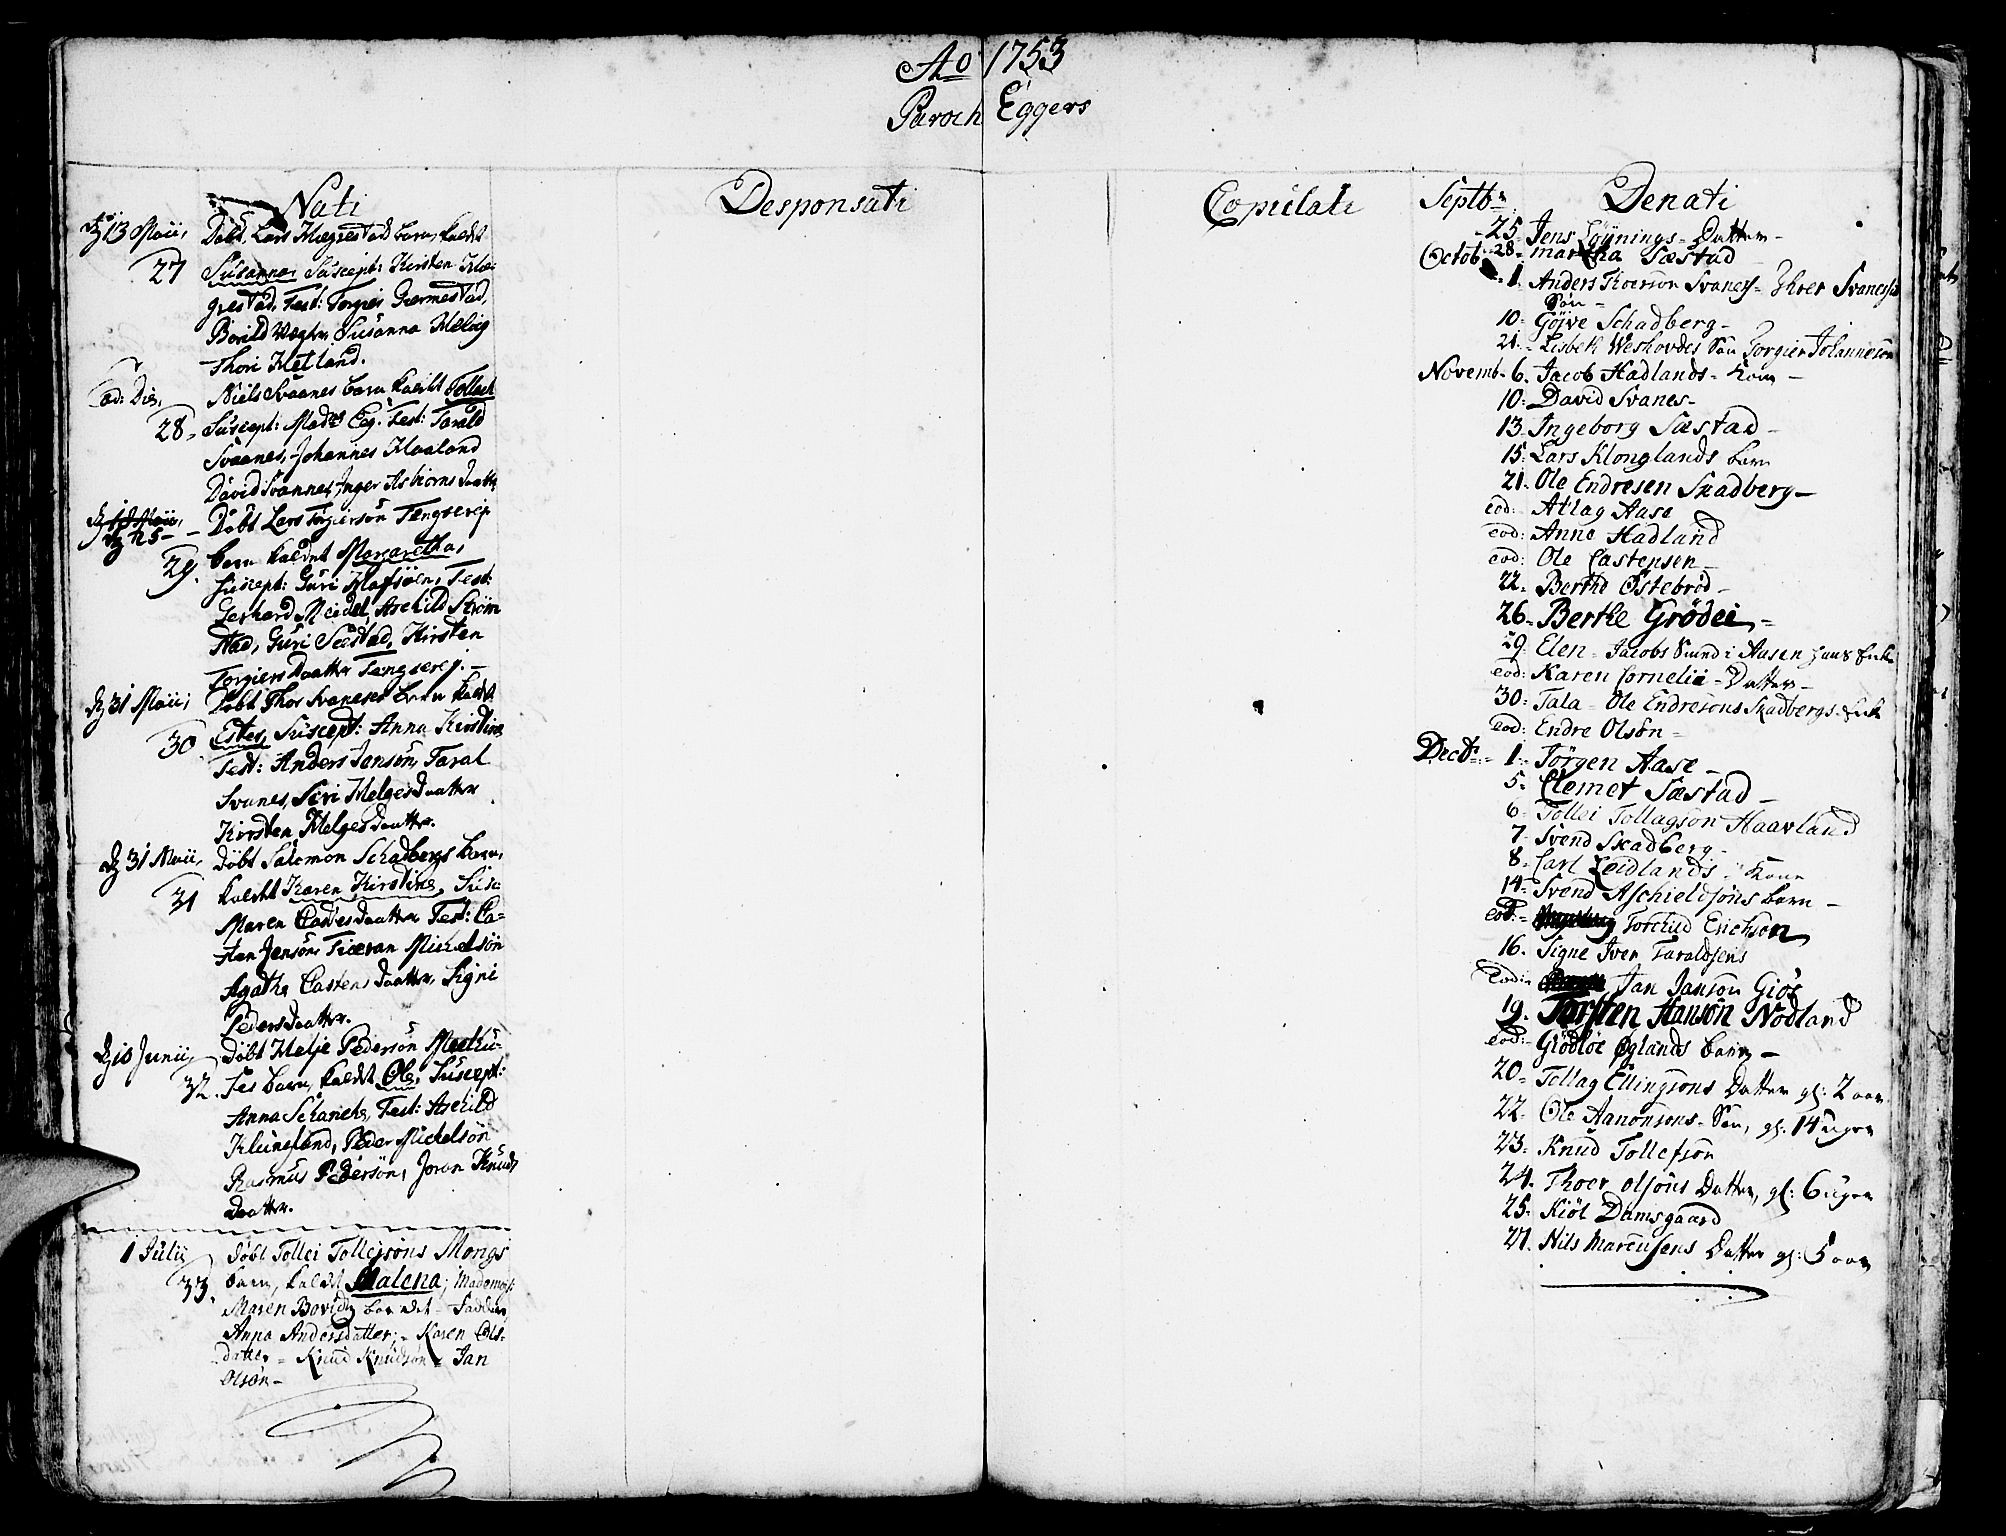 Ao 1753
Paroch Eggers
Nati
Dg 13 Maii, Döbt Lars Hegrestad barn, kaldt
27 Susanna, Suscept: Kirsten He-
grestad, Test: Torgier Giermestad,
Borild Susanna Helvig
Thori Hetland.
eod: Die, Niels Svaanes barn kaldt Tollach
28. Suscept: Mad Eeg. Test: Tarald
Svaanes, Johannes Haaland
David Svannes, Inger Asbiorns daatter
Dg 25 - Döbt Lars Torgiersön Tengserej
29. barn kaldet Margaretha,
Suscept: Guri Test:
Gerhard Meidel, Aschild Ström
stad, Guri Sæstad, Kirsten
Torgiers Daatter Tengserej. -
Dg 31 Maii, Döbt Thor Svaneses barn kaldt
30. Ester, Suscept: Anna Kirstine
Test: Anders Jensön, Taral
Svanes, Siri Helges daatter
Kirsten Helges daatter.
Dg 31 Maii, Döbt Salomon Schadbergs barn,
31 kaldt Karen Kirstine, Susc:
Maren Castes daatter Test: Ca-
sten Jensön, Michelsön
Agatha Castens daatter, Signi
Peders daatter.
Dg 10 Junii, Döbt Helje Pedersön
32. fes barn, kaldet Ole, Suscept:
Anna Test: Aschild
Klungland, Peder Michelsön
Rasmus Pedersön, Joran Knuds
daatter.
1 Julii döbt Tollei Tollejsöns Mongs
33. barn, kaldt Malena; Mademois:
Maren Bovidz bar det - Faddere,
Anna Andersdatter; - Karen Ols-
datter - Knud Knudsön - Jan
Olsön -
Desponsati
Copulati
Denati
Septbr.
25. Jens Löynings - Datter -
28. Martha Sæstad
Octob. 1. Anders Thoersön Svanes - Thoer Svanes
Sön -
10: Göjve Schadberg -
21. Lisbek Weshovdes Sön Torgier Johannesön
Novemb. 6. Jacob Hadlands - Kone -
10: David Svanes -
13. Ingeborg Sæstad -
15: Lars Klonglands barn
21. Ole Endresen Skadberg -
eod: Atlag Aase
eod: Anne Hadland
eod: Ole Castensen -
22. Bertha Östebröd -
26. Berthe Grödei -
29. Elen - Jacobs Svend i Aasen hans
eod: Karen Cornelii - Datter -
30: Tala - Ole Endresöns Skadbergs - Enke
eod: Endre Olsön -
Decbr. 1. Jörgen Aase -
5. Clemet Sæstad -
6 Tollei Tollagsön Haavland
7. Svend Skadberg -
8. Carl Leidlands - Kone
14. Svend Aschieldsöns barn -
eod. Torchild Erichsön
16. Signe Iver Taraldsens
eod: Jan Jansön Giös
19. Torsten Hansön Nodland
eod: Glödloe Øglands barn -
20. Tollag Ellingsöns Datter gl: 2 aar
22. Ole Aanonsens - Sön, gl: 14 uger
23. Knud Tollefsön
24. Thoer Olsöns Datter, gl: 6 uger
25. Kiöl Damsgaard
27. Nils Marcusens Datter gl: 5 aar